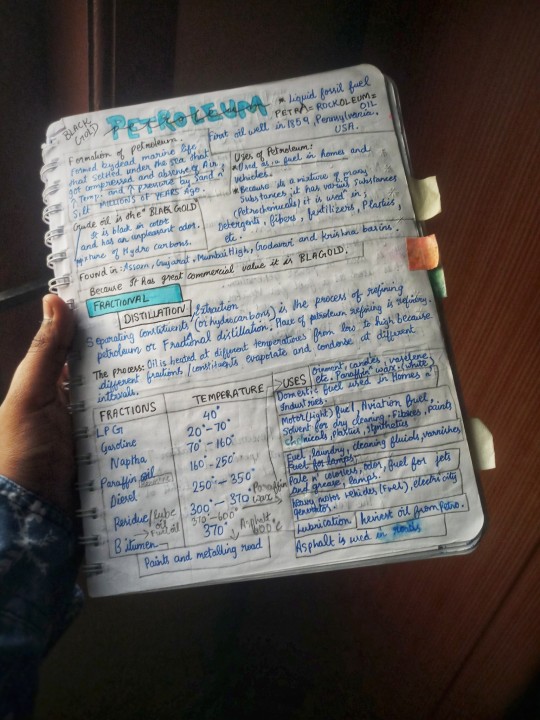 BLACK GOLD
PETROLEUM
* Liquid fossil fuel
PETRA = ROCK OLEUM = OIL
First oil well in 1859, Pennsylvania, USA.
Formation of petroleum
formed by dead marine life
that settled under the sea that
got compressed and absence of Air,
↑ Temp. and ↑ pressure by sand n
Silt MILLIONS OF YEARS AGO.
Crude oil is the "BLACK GOLD"
It is black in color
and has an unpleasant odor.
mixture of Hydro carbons.
Uses of Petroleum:
*Used as a fuel in homes and
vehicles.
*Because its a mixture of many
Substances, it has various substances
(Petrochemicals) it is used in;
Detergents, fibers, fertilizers, Plastics,
etc.
Found in: Assam, Gujarat, Mumbai High, Godavari and Krishna basins.
Because it has great commercial value it is BLAGOLD.
FRACTIONAL
DISTILLATION
Extraction
Separating constituents (or hydrocarbons) is the process of refining
petroleum or Fractional distillation. Place of petroleum refining is refinery.
The process: Oil is heated at different temperatures from low to high because
different fractions/constituents evaporate and condense at different
intervals.
FRACTIONS TEMPERATURE >USES
Ointment, candles, vaseline
etc. Paraffin wax (white)
LPG 40° Domestic fuel used in Homes n
Industries.
Gasoline 20°-70° Motor (light) fuel, Aviation fuel,
Solvent for dry cleaning. Fibers, paints
Chemicals, plastics, synthetics
Naptha 70°-160°
Paraffin oil 160-250° Fuel, laundry, cleaning fluids, varnishes
Fuel for lamps.
Pale n colorless, odor, fuel for jets
and grease, lamps.
Diesel 250°-350° Heavy motor vehicles (Fuel), electricity
generators.
Paraffin wax
Residue/lube oil 300°-370
370°-600° Lubrication / heviest oil from Petro.
Asphalt 600°C
Bitumen 370° Asphalt is used in roads
Paints and metalling road